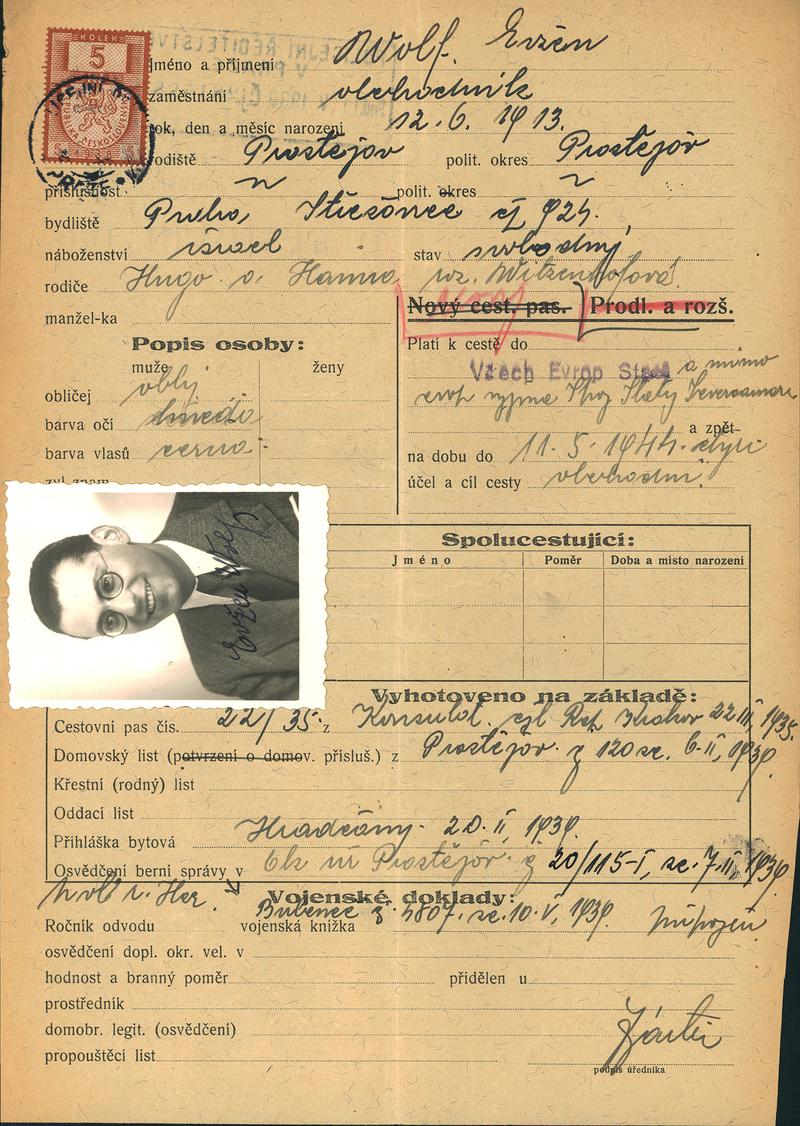 KOLEK
5
Jméno a příjmení Wolf Evžen
zaměstnání obchodník
rok, den a měsíc narození 12. 6. 1913.
rodiště Prostějov polit. okres Prostějov
příslušnost " polit. okres "
bydliště Praha, Střešovice čj 924.
náboženství israel stav svobodný
rodiče Hugo a. Hanna roz. Witzenhofová
manžel-ka
Nový cest. pas. Prodl. a rozš.
Popis osoby:
muže ženy
obličej oblý
barva očí hnědá
barva vlasů černá
zvl. znam.
Platí k cestě do
Všech Evrop Států a mimo
evrop vyjma Spoj Státy Severoamer
a zpět
na dobu do 11. 5. 1944. čtyři
účel a cíl cesty obchodní.
Evžen Wolf
Spolucestující:
Jméno Poměr Doba a místo narození
Vyhotoveno na základě:
Cestovní pas čís. 22/35. z Konsulát čsl Rep. Krakov 22 III, 1935.
Domovský list (potvrzení o domov. přísluš.) z Prostějov. z 120 ze 6. II, 1939.
Křestní (rodný) list
Oddací list
Přihláška bytová Hradčany. 20. II, 1939.
Osvědčení berní správy v bk úř Prostějov. z 20/115-I, ze 7. II, 1939
Vojenské doklady:
Bubeneč z. 4807. ze 10. V, 1939. připojeno
Ročník odvodu vojenská knížka
osvědčení dopl. okr. vel. v
hodnost a branný poměr přidělen u
prostředník
domobr. legit. (osvědčení)
propouštěcí list
podpis úředníka